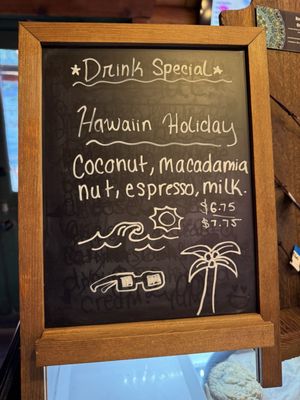 *Drink Special*
Hawaiin Holiday
Coconut, macadamia
nut, espresso, milk.
$6.75
$7.75